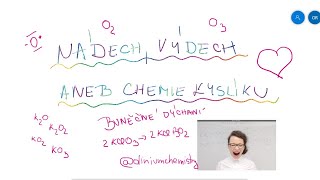 O₂ O₃
·Ö·
NÁDECH, VÝDECH
ANEB CHEMIE KYSLÍKU
K₂O
K₂O₂
KO₂
KO₃
BUNĚČNÉ DÝCHÁNÍ
@aliniumchemistry
OR